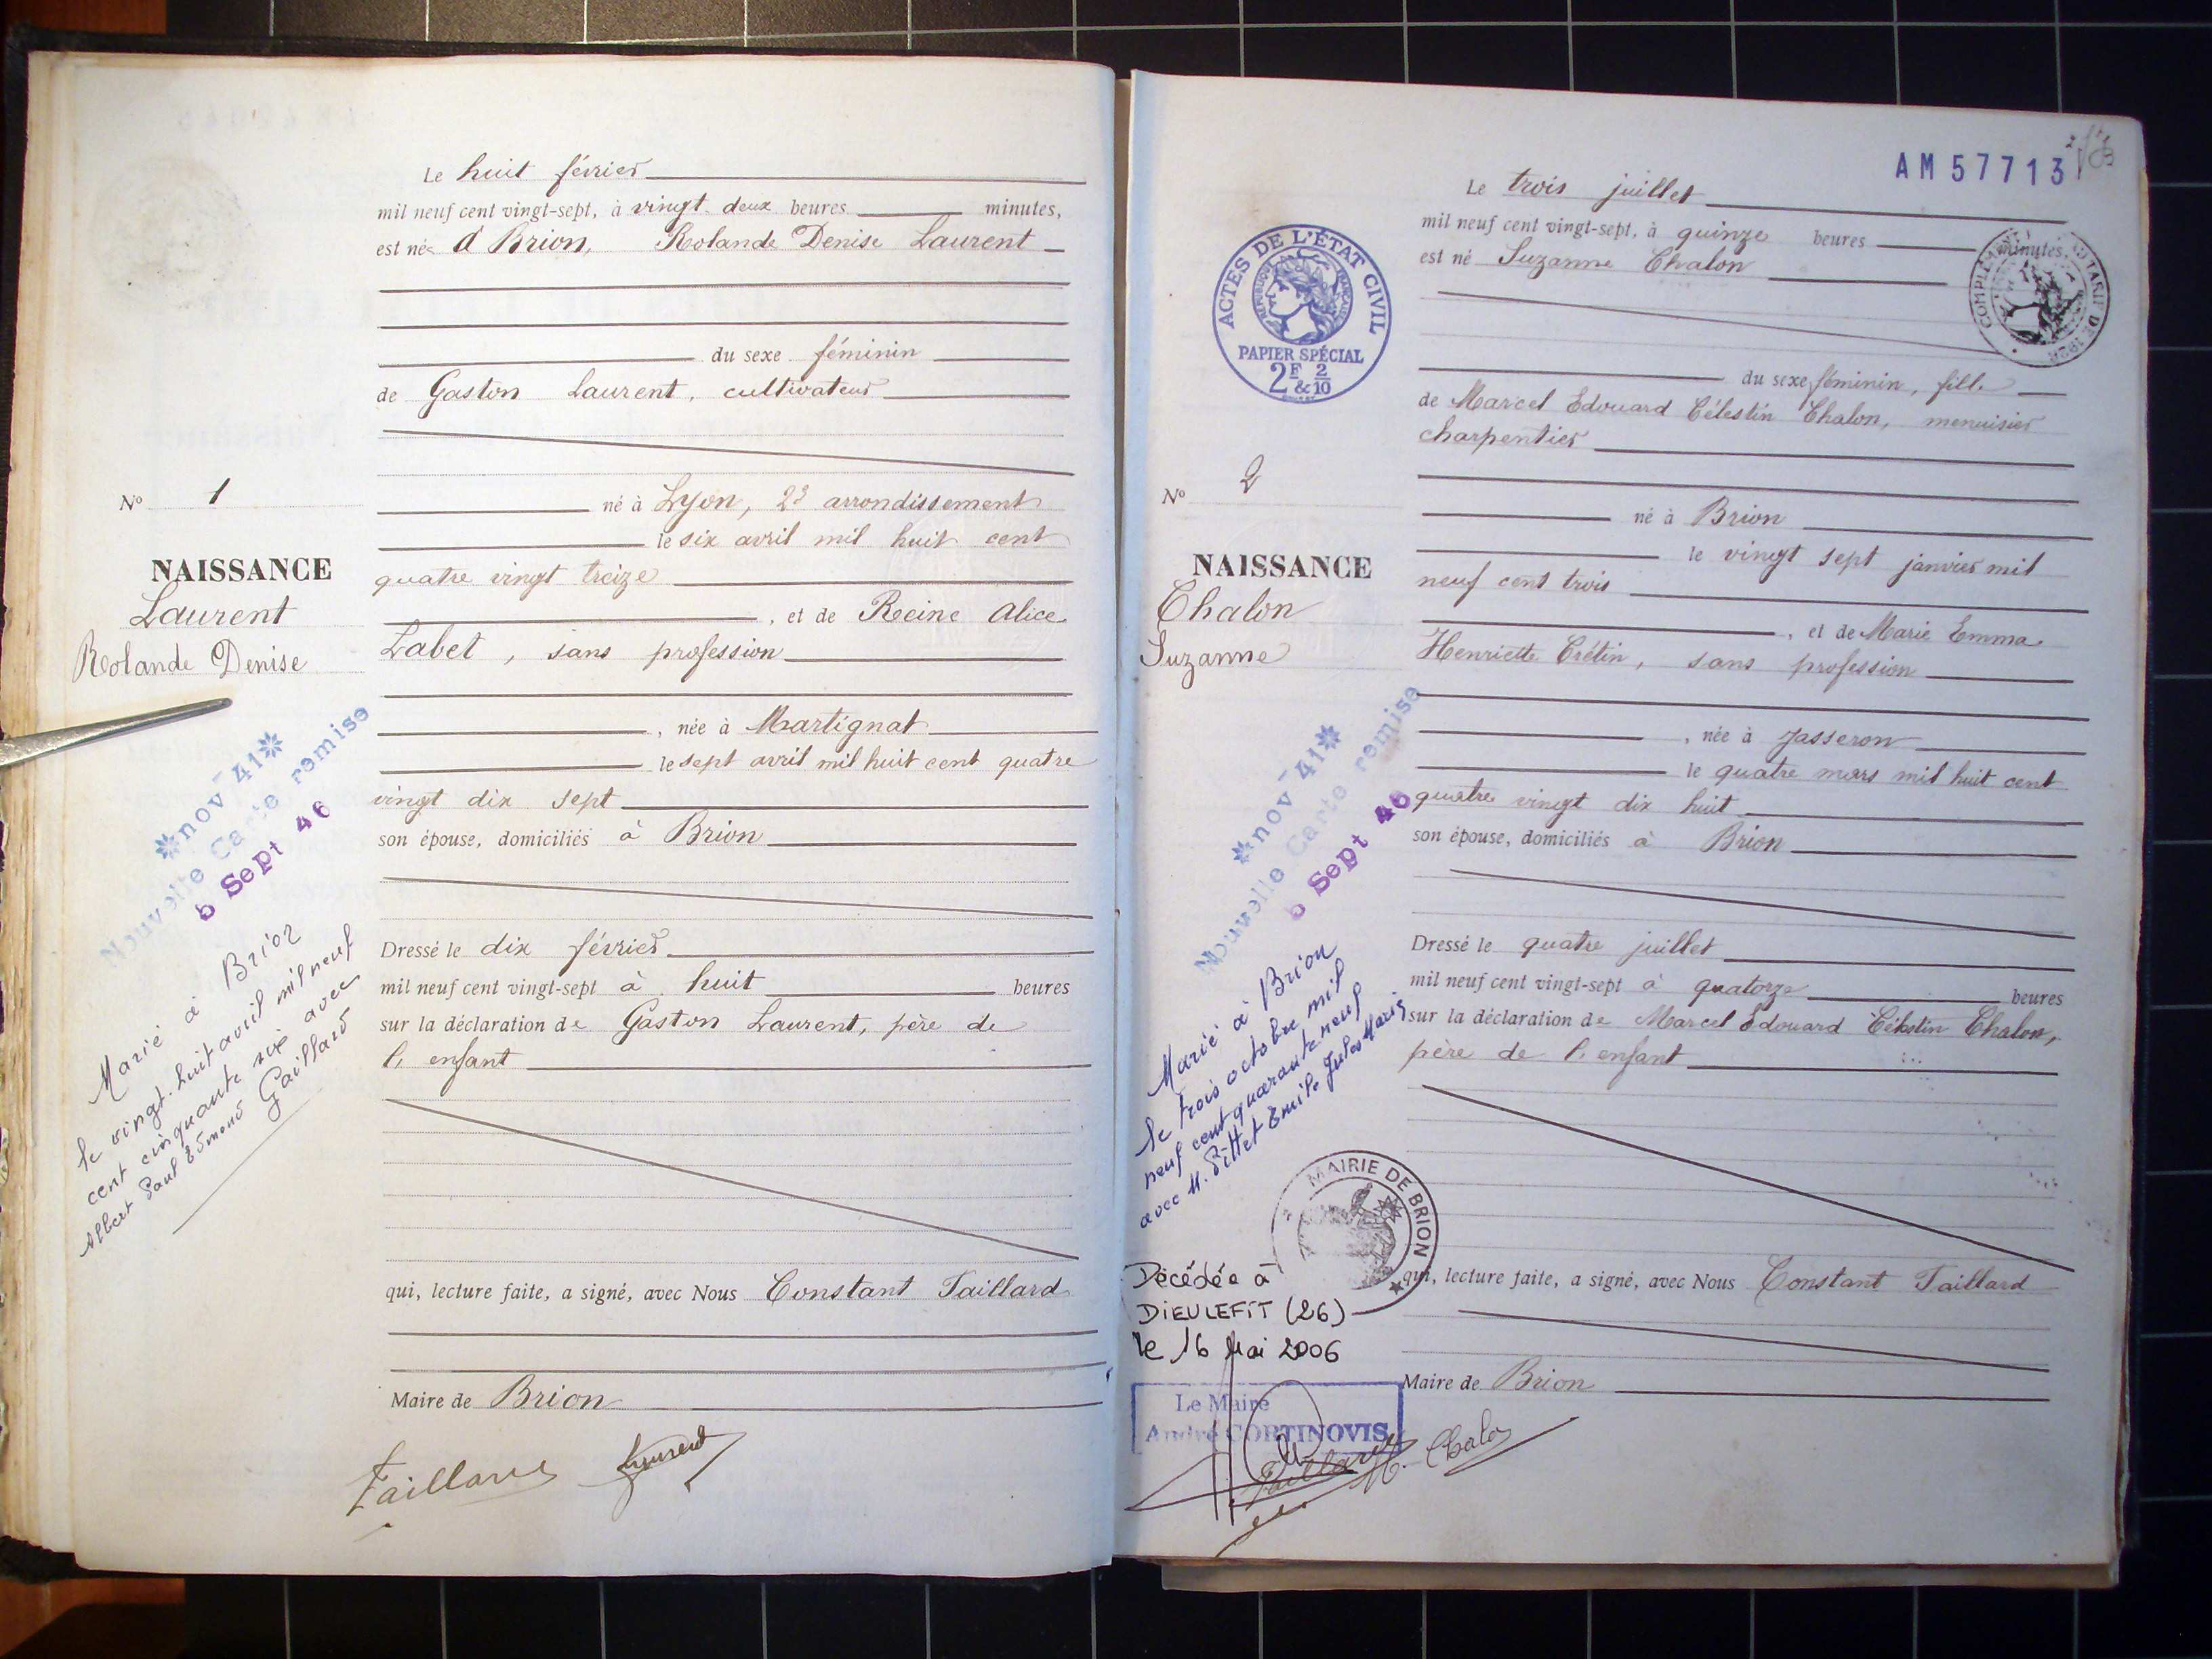 Le huit février
mil neuf cent vingt-sept, à vingt deux heures minutes,
est née à Brion, Rolande Denise Laurent
du sexe féminin
de Gaston Laurent, cultivateur
né à Lyon, 2e arrondissement
le six avril mil huit cent
quatre vingt treize
, et de Reine Alice
Labet, sans profession
, née à Martignat
le sept avril mil huit cent quatre
vingt dix sept
son épouse, domiciliés à Brion
Dressé le dix février
mil neuf cent vingt-sept à huit heures
sur la déclaration de Gaston Laurent, père de
l'enfant
qui, lecture faite, a signé, avec Nous Constant Taillard
Maire de Brion
Taillard Laurent
No 1
NAISSANCE
Laurent
Rolande Denise
nov 41
Nouvelle Carte remise
6 Sept 46
Marié à Brion
le vingt-huit avril mil neuf
cent cinquante six avec
Albert Paul Edmond Gaillard
AM 57713
Le trois juillet
mil neuf cent vingt-sept, à quinze heures minutes,
est né Suzanne Chalon
du sexe féminin, fille
de Marcel Edouard Célestin Chalon, menuisier
charpentier
né à Brion
le vingt sept janvier mil
neuf cent trois
, et de Marie Emma
Henriette Crétin, sans profession
, née à Jasseron
le quatre mars mil huit cent
quatre vingt dix huit
son épouse, domiciliés à Brion
Dressé le quatre juillet
mil neuf cent vingt-sept à quatorze heures
sur la déclaration de Marcel Edouard Célestin Chalon,
père de l'enfant
qui, lecture faite, a signé, avec Nous Constant Taillard
Maire de Brion
Taillard M. Chalon
ACTES DE L'ÉTAT CIVIL
RÉPUBLIQUE FRANÇAISE
PAPIER SPÉCIAL
2F & 2/10
No 2
NAISSANCE
Chalon
Suzanne
nov 41
Nouvelle Carte remise
6 Sept 46
Marié à Brion
le trois octobre mil
neuf cent quarante neuf
avec M. Pittet Emile Jules Marie
MAIRIE DE BRION
Décédée à
DIEULEFIT (26)
le 16 Mai 2006
Le Maire
André CORTINOVIS